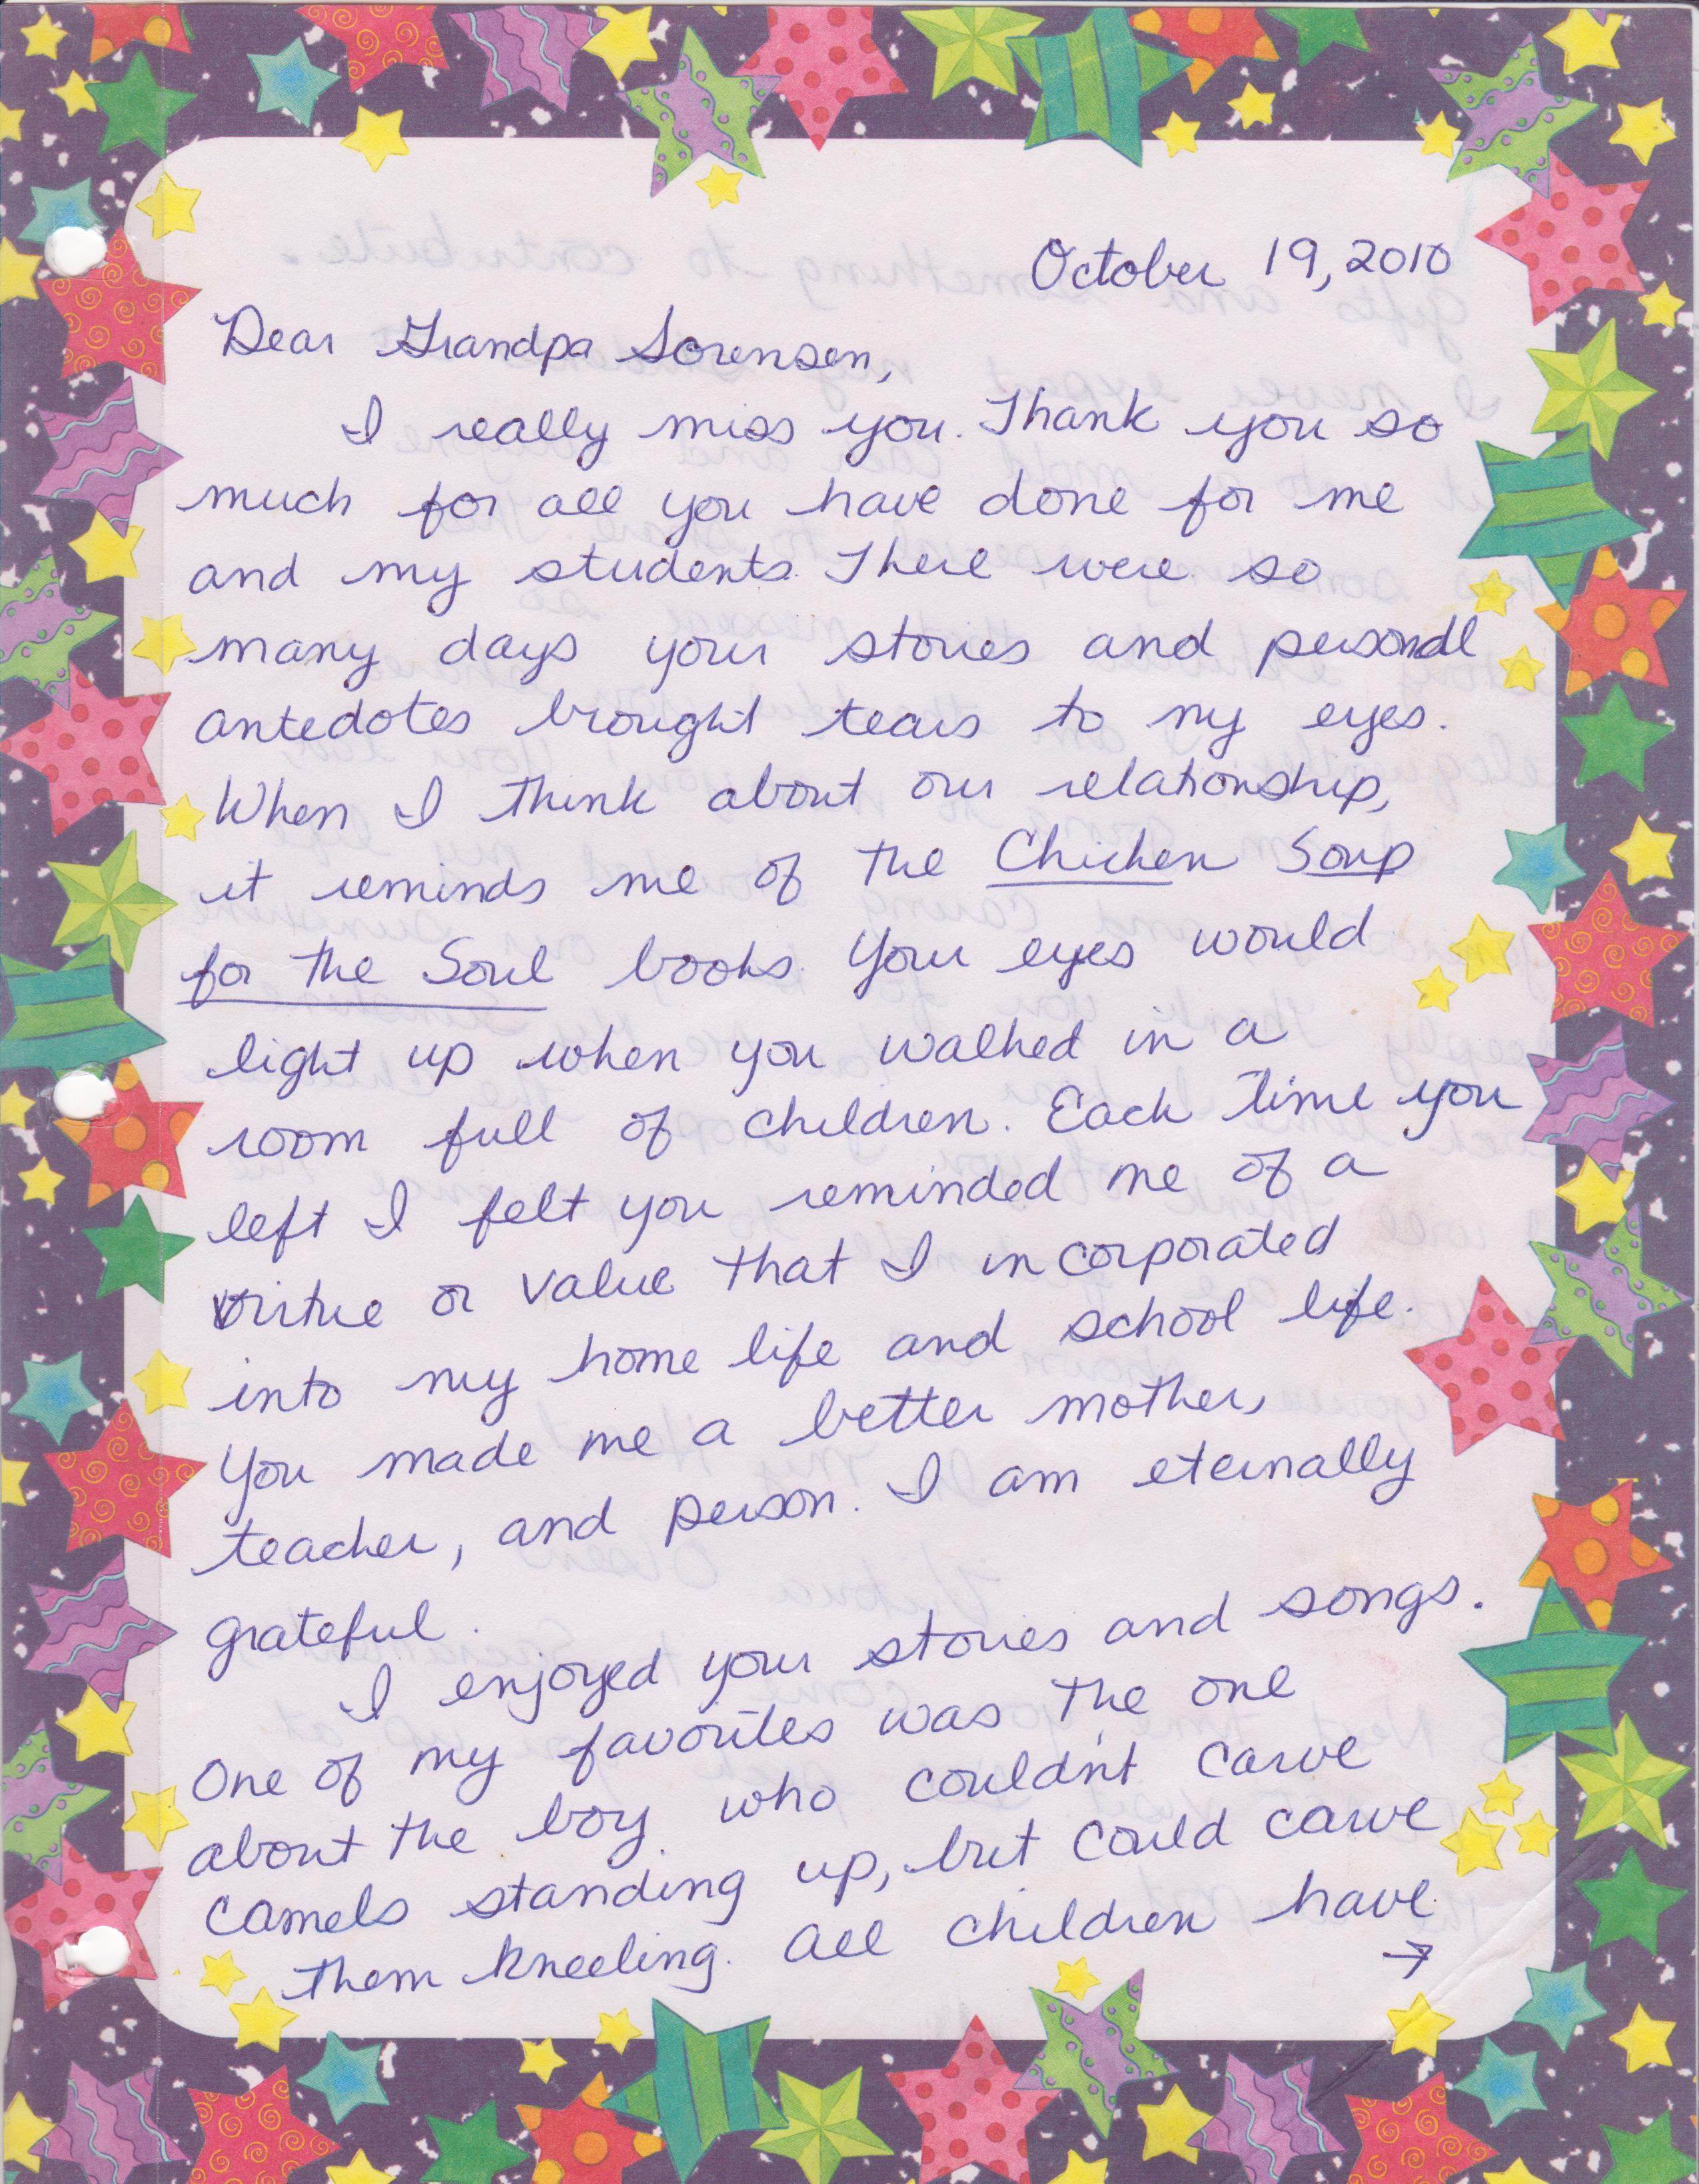 October 19, 2010
Dear Grandpa Sorensen,
I really miss you. Thank you so
much for all you have done for me
and my students. There were so
many days your stories and personal
antedotes brought tears to my eyes.
When I think about our relationship,
it reminds me of the Chicken Soup
for the Soul books. Your eyes would
light up when you walked in a
room full of children. Each time you
left I felt you reminded me of a
virtue or value that I incorporated
into my home life and school life.
You made me a better mother,
teacher, and person. I am eternally
grateful.
I enjoyed your stories and songs.
One of my favorites was the one
about the boy who couldn't carve
camels standing up, but could carve
them kneeling. All children have
→